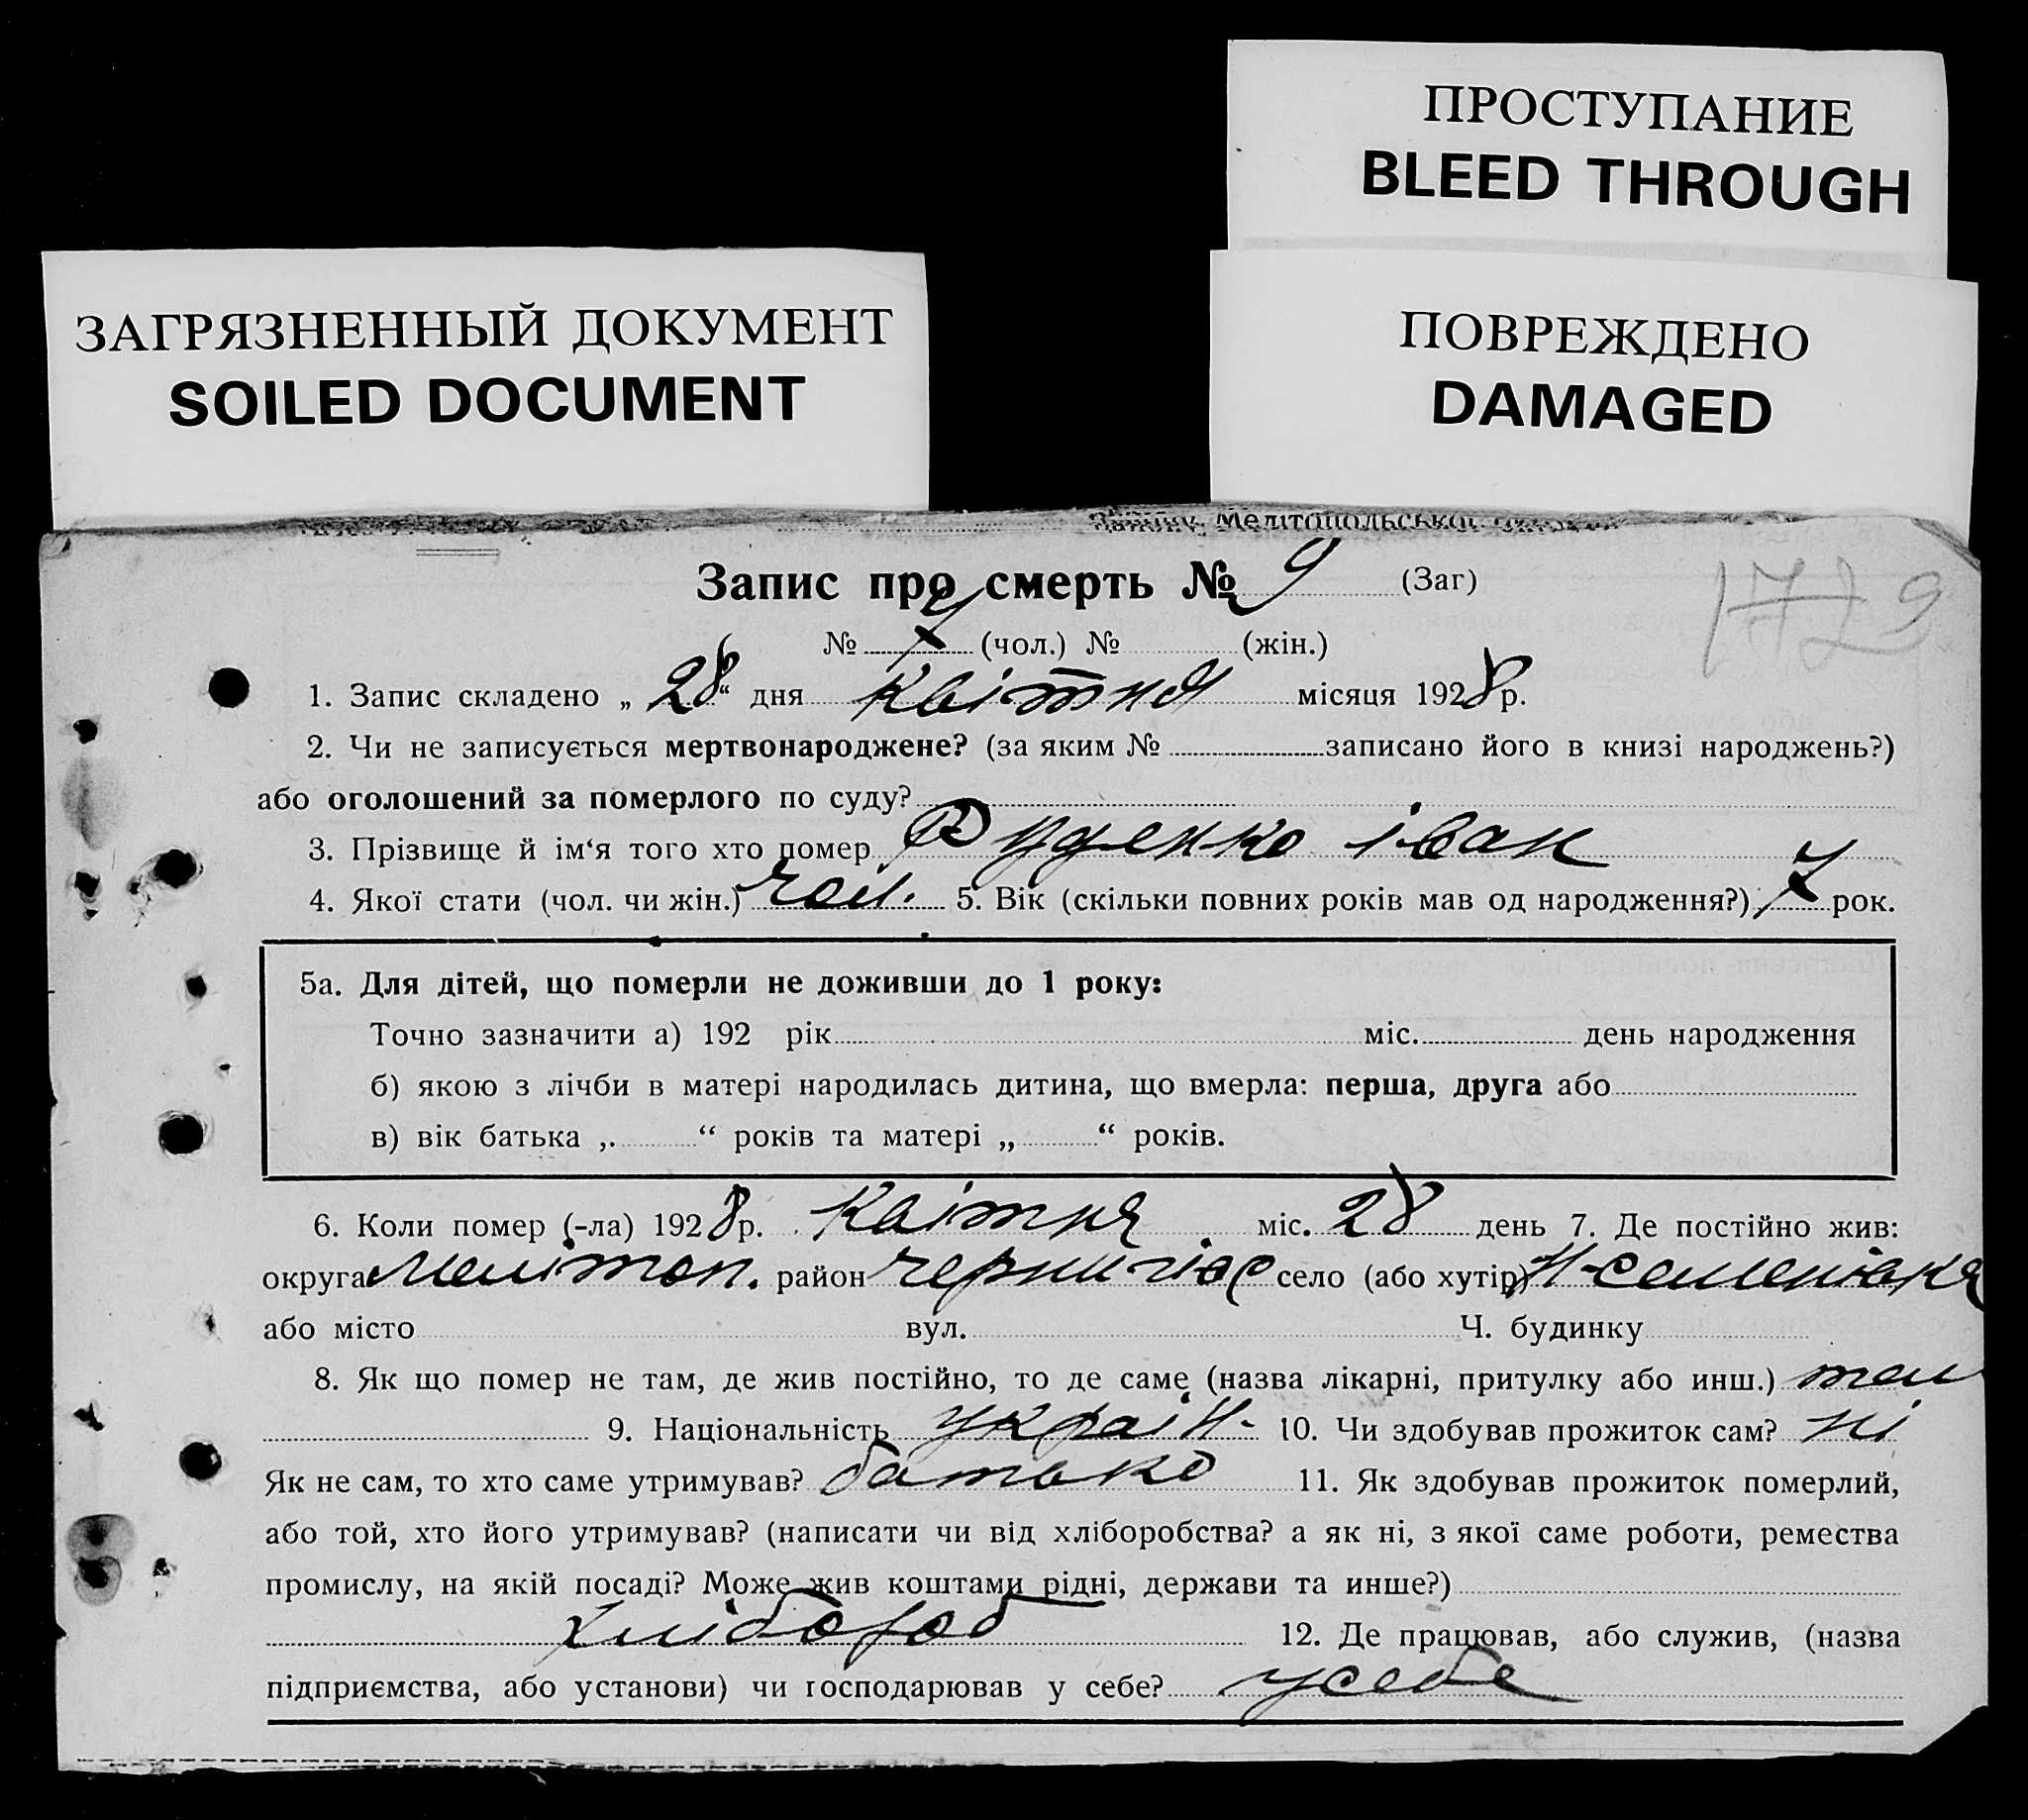 ПРОСТУПАНИЕ
BLEED THROUGH
ЗАГРЯЗНЕННЫЙ ДОКУМЕНТ
SOILED DOCUMENT
ПОВРЕЖДЕНО
DAMAGED
Мелітопольської
Запис про смерть № 9 (Заг)
1729
№ 7 (чол.) № (жін.)
1. Запис складено „ 28 “ дня квітня місяця 1928 р.
2. Чи не записується мертвонароджене? (за яким № записано його в книзі народжень?)
або оголошений за померлого по суду?
3. Прізвище й ім‘я того хто помер Руденко іван
4. Якої статі (чол. чи жін.) чол. 5. Вік (скільки повних років мав од народження?) 7 рок.
5а. Для дітей, що померли не доживши до 1 року:
Точно зазначити а) 192 рік міс. день народження
б) якою з лічби в матері народилась дитина, що вмерла: перша, друга або
в) вік батька „ “ років та матері „ “ років.
6. Коли помер (-ла) 1928 р. Квітня міс. 28 день 7. Де постійно жив:
округа Меліт​оп. район село (або хутір) Н-семенівка
або місто вул. Ч. будинку
8. Як що помер не там, де жив постійно, то де саме (назва лікарні, притулку або инш.) там
9. Національність украін- 10. Чи здобував прожиток сам? ні
Як не сам, то хто саме утримував? батько 11. Як здобував прожиток померлий,
або той, хто його утримував? (написати чи від хліборобства? а як ні, з якої саме роботи, ремества
промислу, на якій посаді? Може жив коштами рідні, держави та инше?)
хлібороб 12. Де працював, або служив, (назва
підприємства, або установи) чи господарював у себе? усебе